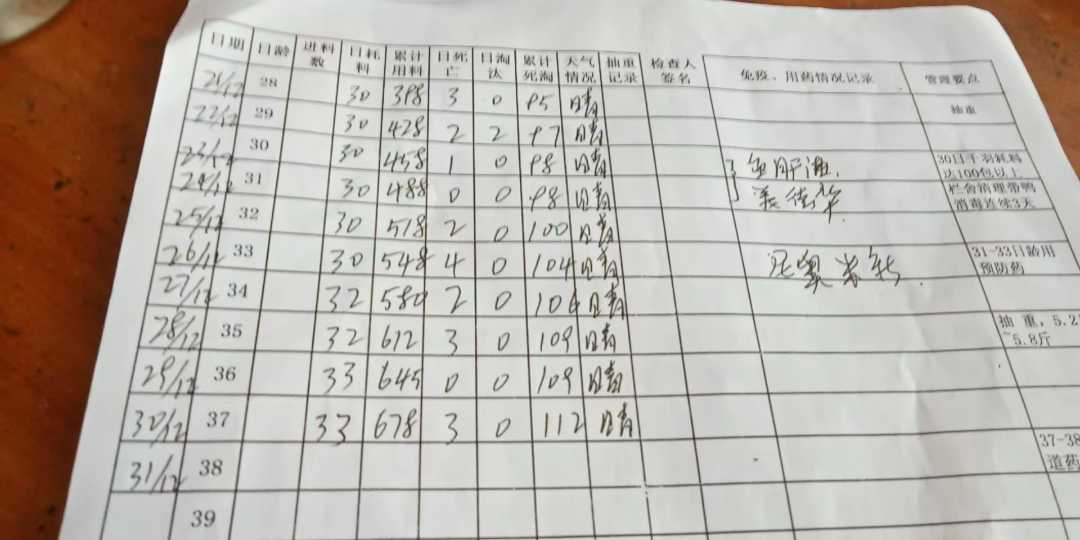 日期 日龄 进料数 日耗料 累计用料 日死亡 日淘汰 累计死淘 天气情况 抽重记录 检查人签名 免疫、用药情况记录 管理要点
21/12 28 30 398 3 0 95 晴 抽重
22/12 29 30 428 2 2 97 晴
23/12 30 30 458 1 0 98 晴 30日千羽耗料达100包以上
24/12 31 30 488 0 0 98 晴 栏舍清理带鸭消毒连续3天
25/12 32 30 518 2 0 100 晴
26/12 33 30 548 4 0 104 晴 31-33日龄用预防药
27/12 34 32 580 2 0 106 晴
28/12 35 32 612 3 0 109 晴 抽重，5.2~5.8斤
29/12 36 33 645 0 0 109 晴
30/12 37 33 678 3 0 112 晴
31/12 38 37-38 道药
39